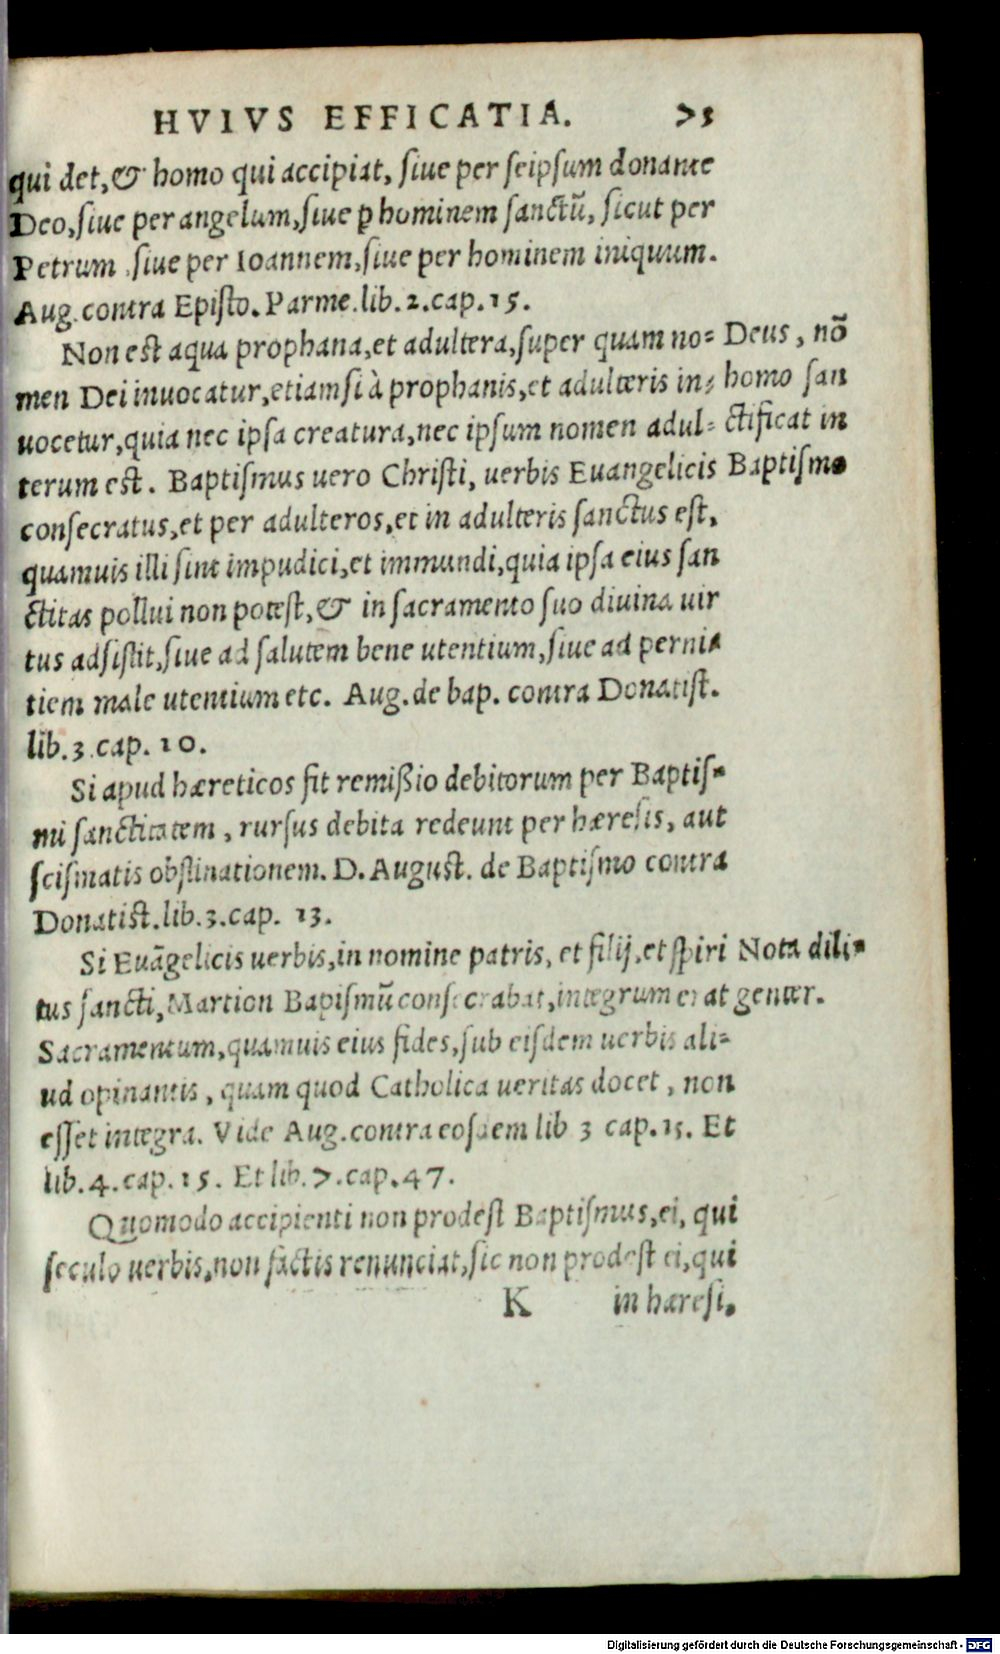 HVIVS EFFICATIA. 75
qui det, & homo qui accipiat, ſiue per ſeipſum donante
Deo, ſiue per angelum, ſiue ꝑ hominem ſanctũ, ſicut per
Petrum, ſiue per Ioannem, ſiue per hominem iniquum.
Aug. contra Epiſto. Parme. lib. 2. cap. 15.
Non est aqua prophana, et adultera, ſuper quam no=
men Dei inuocatur, etiamſi à prophanis, et adulteris in=
uocetur, quia nec ipſa creatura, nec ipſum nomen adul=
terum est. Baptiſmus uero Chriſti, uerbis Euangelicis
conſecratus, et per adulteros, et in adulteris ſanctus eſt,
quamuis illi ſint impudici, et immundi, quia ipſa eius ſan
ctitas pollui non poteſt, & in ſacramento ſuo diuina uir
tus adſiſtit, ſiue ad ſalutem bene utentium, ſiue ad perni=
tiem male utentium etc. Aug. de bap. contra Donatiſt.
lib. 3. cap. 10.
Deus, nõ
homo ſan
ctificat in
Baptiſmo
Si apud hæreticos fit remißio debitorum per Baptiſ=
mi ſanctitatem, rurſus debita redeunt per hæreſis, aut
ſciſmatis obſtinationem. D. Auguſt. de Baptiſmo contra
Donatiſt. lib. 3. cap. 13.
Si Euãgelicis uerbis, in nomine patris, et filij, et ſpiri
tus ſancti, Martion Bapiſmũ conſecrabat, integrum erat
Sacramentum, quamuis eius fides, ſub eiſdem uerbis ali=
ud opinantis, quam quod Catholica ueritas docet, non
eſſet integra. Vide Aug. contra eoſdem lib 3 cap. 15. Et
lib. 4. cap. 15. Et lib. 7. cap. 47.
Nota dili=
genter.
Quomodo accipienti non prodeſt Baptiſmus, ei, qui
ſeculo uerbis, non factis renunciat, ſic non prodeſt ei, qui
K in hæreſi.
Digitalisierung gefördert durch die Deutsche Forschungsgemeinschaft - DFG